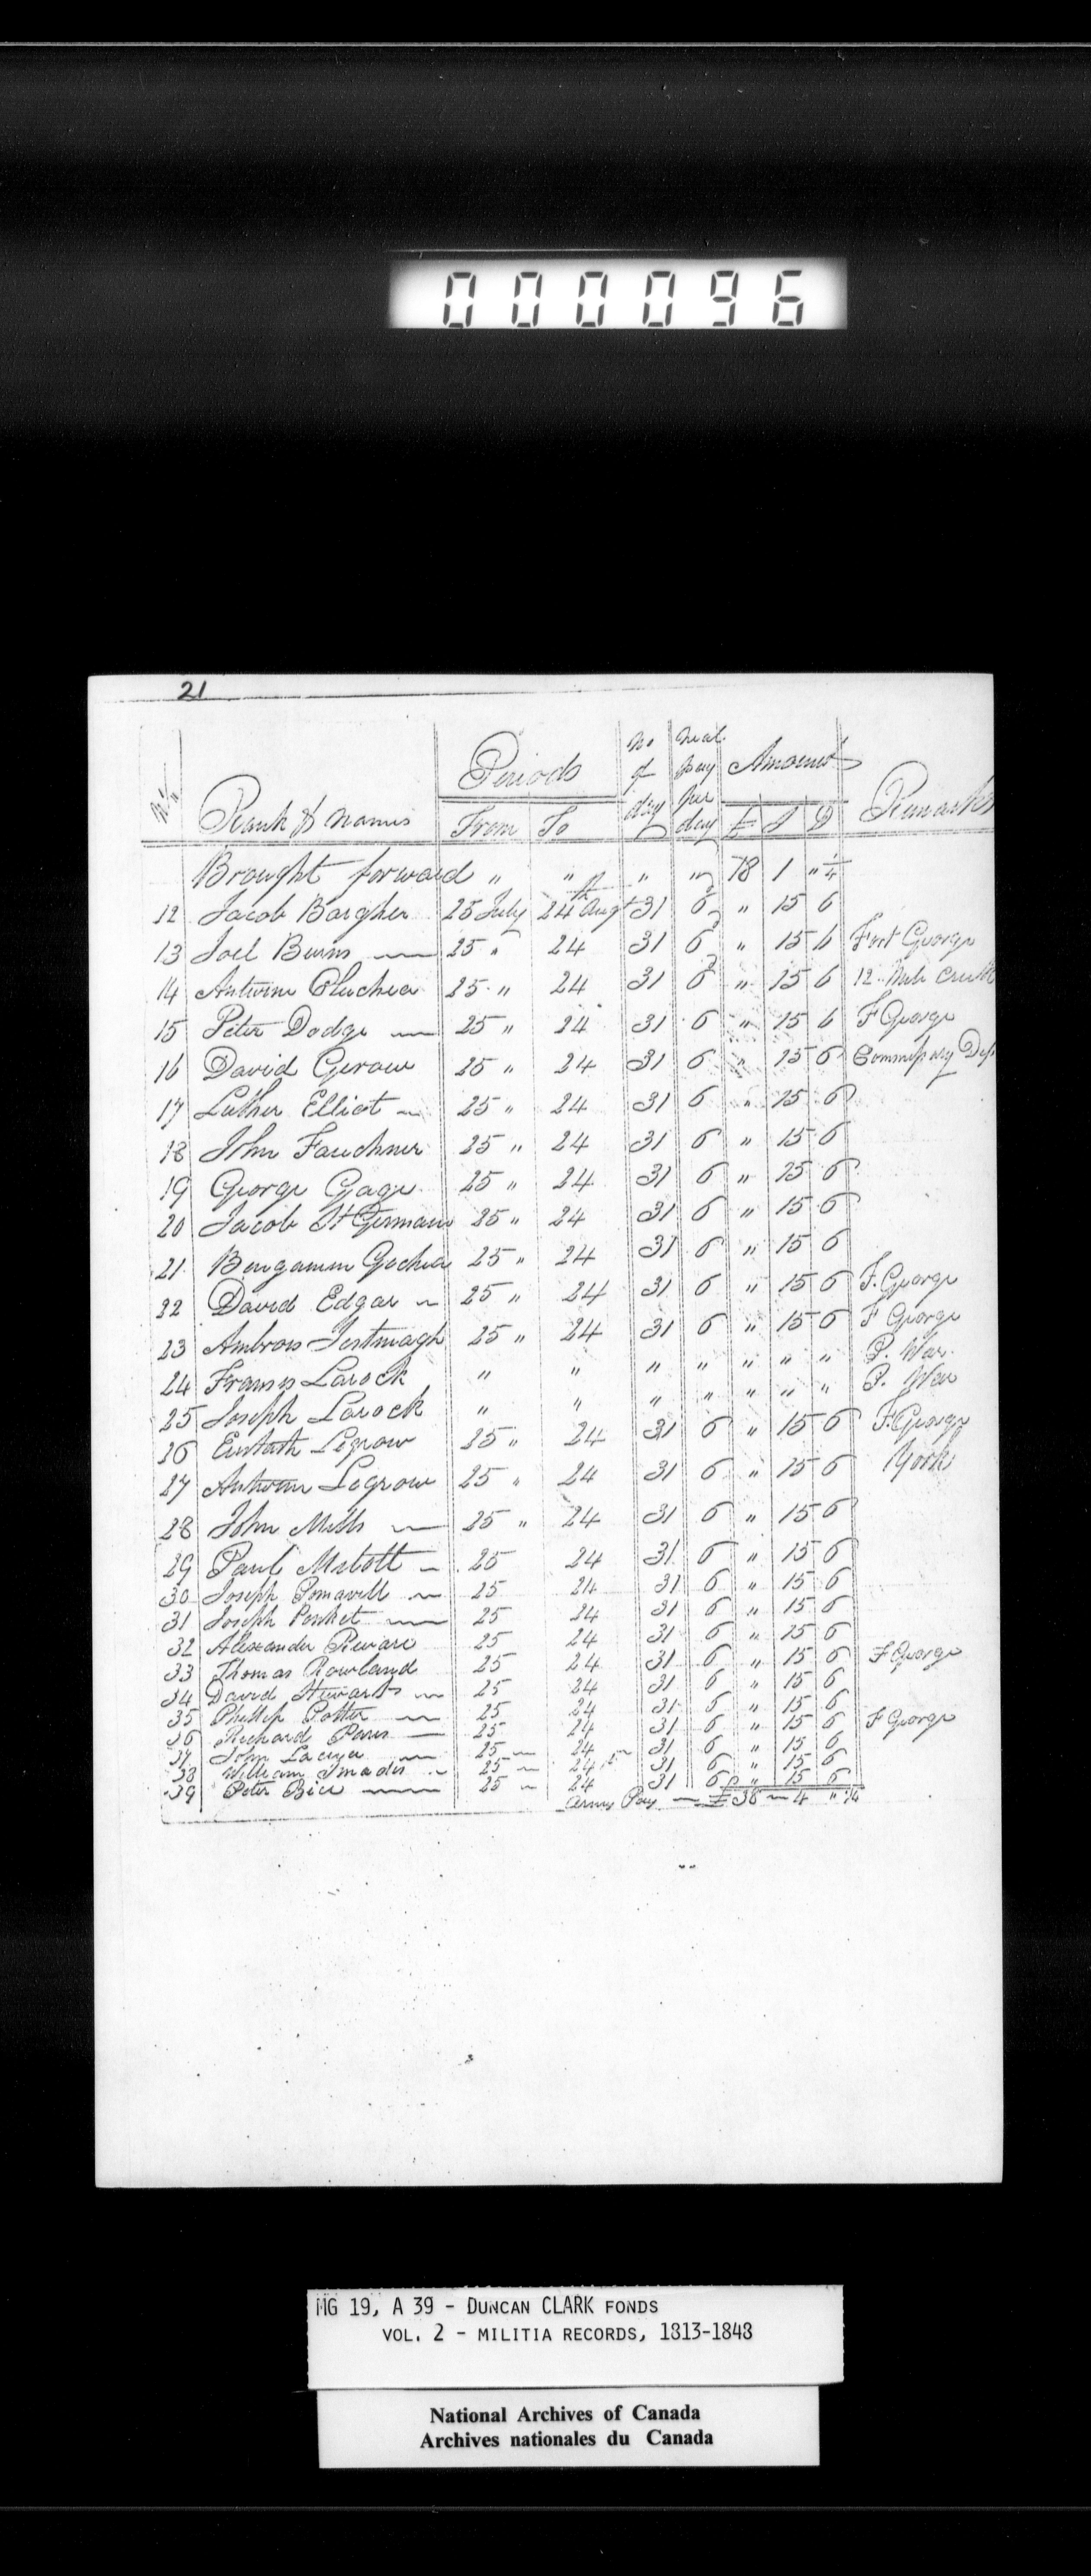 000096
21
No Rank & Names Periods From To No of days Neat pay per day Amount £ S D Remarks
Brought forward " " " " 78 1 " ¼
12 Jacob Bargher 25 July 24th Augt 31 6 " 15 6
13 Joel Burns 25 " 24 31 6 " 15 6 Fort George
14 Antwine 25 " 24 31 6 " 15 6 12 Mile Creek
15 Peter Dodge 25 " 24 31 6 " 15 6 F George
16 David Gerow 25 " 24 31 6 " 15 6 Commissary Dep
17 Luther Elliot 25 " 24 31 6 " 15 6
18 John Fauchner 25 " 24 31 6 " 15 6
19 George Gage 25 " 24 31 6 " 15 6
20 Jacob St Germain 25 " 24 31 6 " 15 6
21 Bengamin Gochea 25 " 24 31 6 " 15 6
22 David Edgar 25 " 24 31 6 " 15 6 F. George
23 Ambrois 25 " 24 31 6 " 15 6 F George
24 Francis Larock " " " " " " " P. War
25 Joseph Larock " " " " " " " P. War
26 Legrow 25 " 24 31 6 " 15 6 F. George
27 Antwine Legrow 25 " 24 31 6 " 15 6 York
28 John Mills 25 " 24 31 6 " 15 6
29 Paul 25 24 31 6 " 15 6
30 Joseph Pomavell 25 24 31 6 " 15 6
31 Joseph 25 24 31 6 " 15 6
32 Alexander 25 24 31 6 " 15 6
33 Thomas Rowland 25 24 31 6 " 15 6 F George
34 David Stewart 25 24 31 6 " 15 6
35 Phillip Potter 25 24 31 6 " 15 6
36 Richard Paris 25 24 31 6 " 15 6 F George
37 John 25 24 31 6 " 15 6
38 William 25 24 31 6 " 15 6
39 Peter Bice 25 24 31 6 " 15 6
Army Pay £38 4 " ¼
MG 19, A 39 - DUNCAN CLARK FONDS
VOL. 2 - MILITIA RECORDS, 1813-1848
National Archives of Canada
Archives nationales du Canada